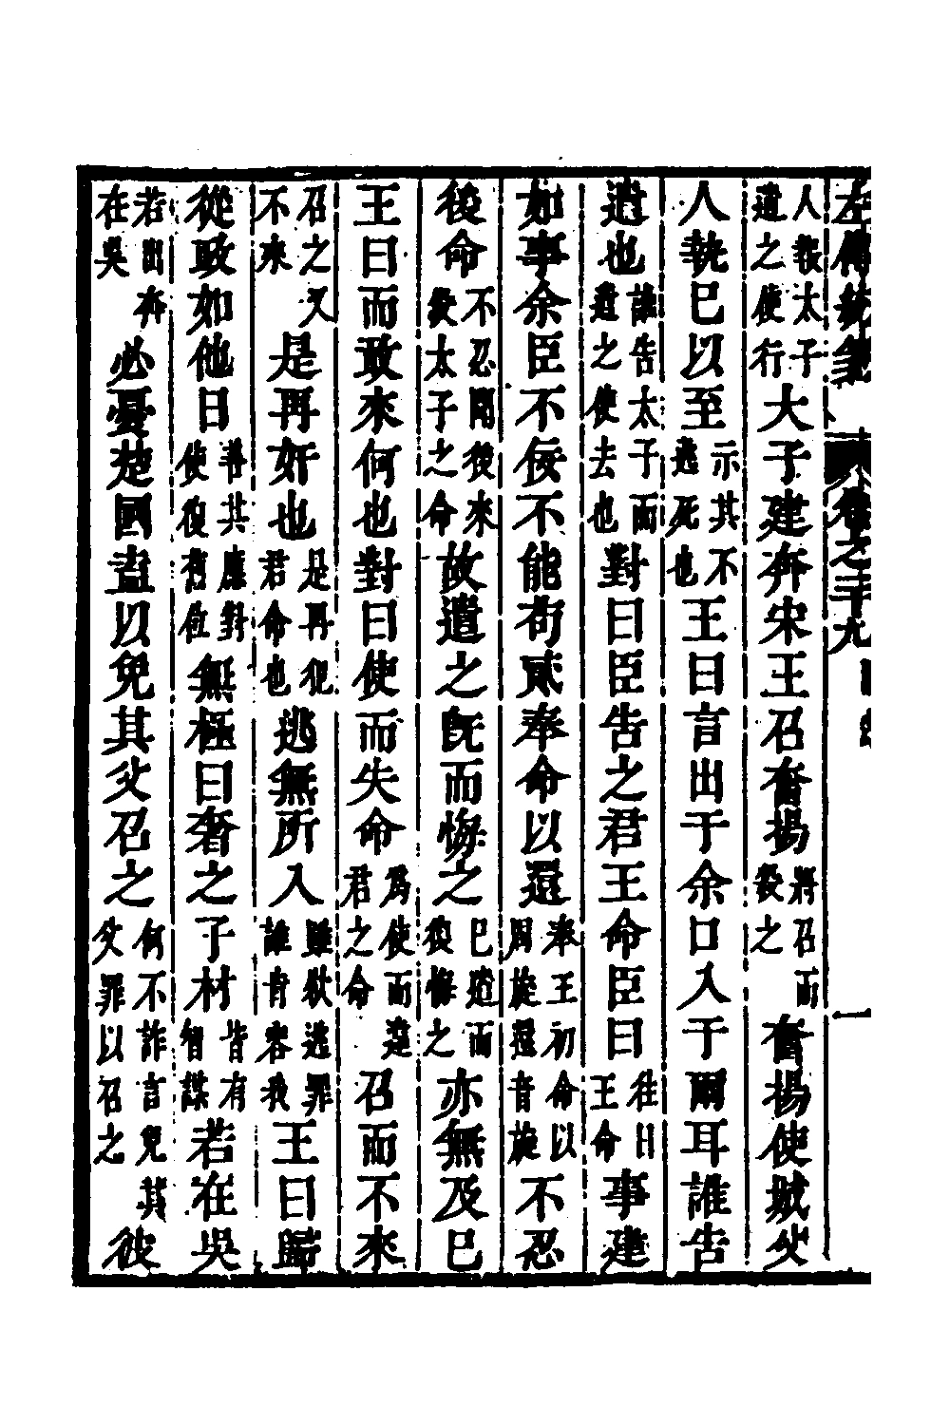 左傳統箋 卷之二十九 一
人報太子遣之使行大子建奔宋王召奮揚將召而殺之奮揚使城父
人執已以至示其不逃死也王曰言出于余口入于爾耳誰告
遣也誰告太子而遣之使去也對曰臣告之君王命臣曰往日王命事建
如事余臣不佞不能苟貳奉命以還奉王初命以周旋還音旋不忍
後命不忍聞後來殺太子之命故遣之旣而悔之巳遣而復悔之亦無及巳
王曰而敢來何也對曰使而失命爲使而違君之命召而不來
召之又不來是再奸也是再犯君命也逃無所入雖欲逃罪誰肯容我王曰歸
從政如他日善其應對使復舊位無極曰奢之子材皆有智謀若在吳
若出奔在吳必憂楚國盍以免其父召之何不詐言免其父罪以召之彼